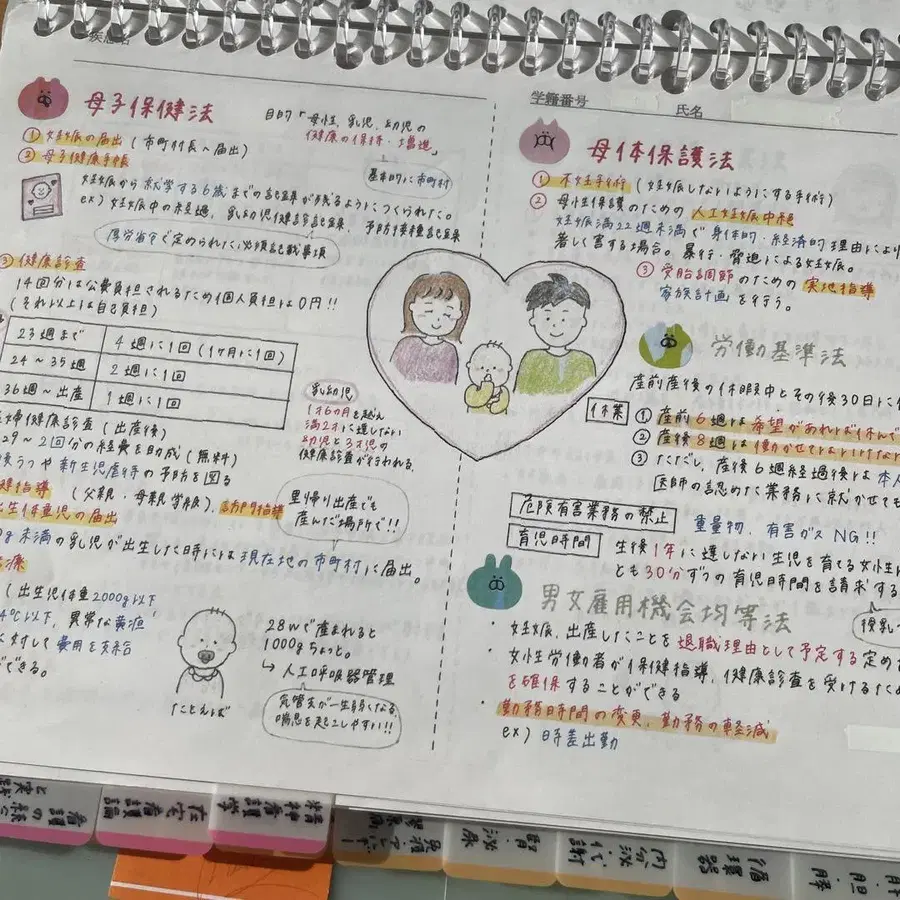 母子保健法
目的「母性、乳児、幼児の
健康の保持・増進」
基本的に市町村
① 妊娠の届出(市町村長へ届出)
② 母子健康手帳
妊娠から就学する6歳までの記録が残るようにつくられた。
ex) 妊娠中の経過、乳幼児健診記録、予防接種記録
厚労省令で定められた必須記載事項
③ 健康診査
14回分は公費負担されるため個人負担は0円!!
(それ以上は自己負担)
23週まで 4週に1回(1ヶ月に1回)
24〜35週 2週に1回
36週〜出産 1週に1回
婦健康診査(出産後)
2回分の経費を助成(無料)
後うつや新生児虐待の予防を図る
健指導(父親・母親学級)、訪問指導
乳幼児
1才6カ月を超え
満2才に達しない
幼児と3才児の
健康診査が行われる
里帰り出産でも
産んだ場所で!!
出生体重児の届出
g未満の乳児が出生した時には現在地の市町村に届出。
(出生時体重2000g以下
4℃以下、異常な黄疸
に対して費用を支給
できる。
たとえば
28wで産まれると
1000gちょっと。
↳ 人工呼吸器管理
気管支が一生弱くなる
喘息を起こしやすい!!
学籍番号 氏名
母体保護法
① 不妊手術(妊娠しないようにする手術)
② 母性保護のための人工妊娠中絶
妊娠満22週未満で身体的・経済的理由により
著しく害する場合。暴行・脅迫による妊娠。
③ 受胎調節のための実地指導
家族計画を行う。
労働基準法
産前産後の休暇中とその後30日に
休業
① 産前6週は希望があれば休んで
② 産後8週は働かせてはいけない
③ ただし、産後6週経過後は本人
医師の認めた業務に就かせても
危険有害業務の禁止 重量物、有害ガスNG!!
育児時間 生後1年に達しない生児を育てる女性に
とも30分ずつの育児時間を請求する
男女雇用機会均等法
・妊娠、出産したことを退職理由として予定する定め
・女性労働者が保健指導、健康診査を受けるため
を確保することができる
・勤務時間の変更、勤務の軽減
ex) 時差出勤
在宅看護論
精神看護学
内分泌・代謝
循環器
肝・胆・膵